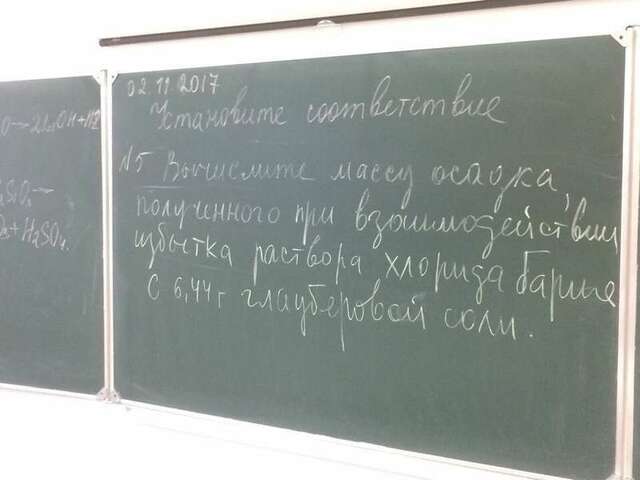 02.11.2017
Установите соответствие
N5 Вычислите массу осадка,
полученного при взаимодействии
избытка раствора хлорида бария
с 6,44г глауберовой соли.
+ H₂SO₄.